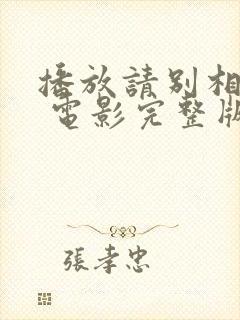 播放請別相
電影完整版
張孝忠